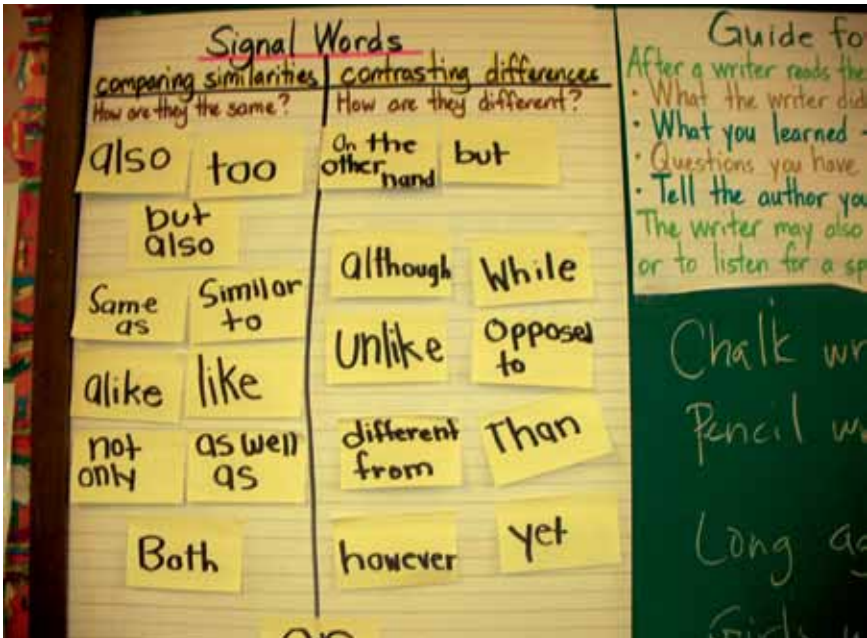 Signal Words
comparing similarities
How are they the same?
also
too
but
also
Same
as
Similar
to
alike
like
not
only
as well
as
Both
contrasting differences
How are they different?
On the
other
hand
but
although
While
Unlike
Opposed
to
different
from
Than
however
yet
or
Guide
After a writer reads
• What the writer
• What you learned
• Questions you have
• Tell the author
The writer may also
or to listen for a
Chalk
Pencil
Long